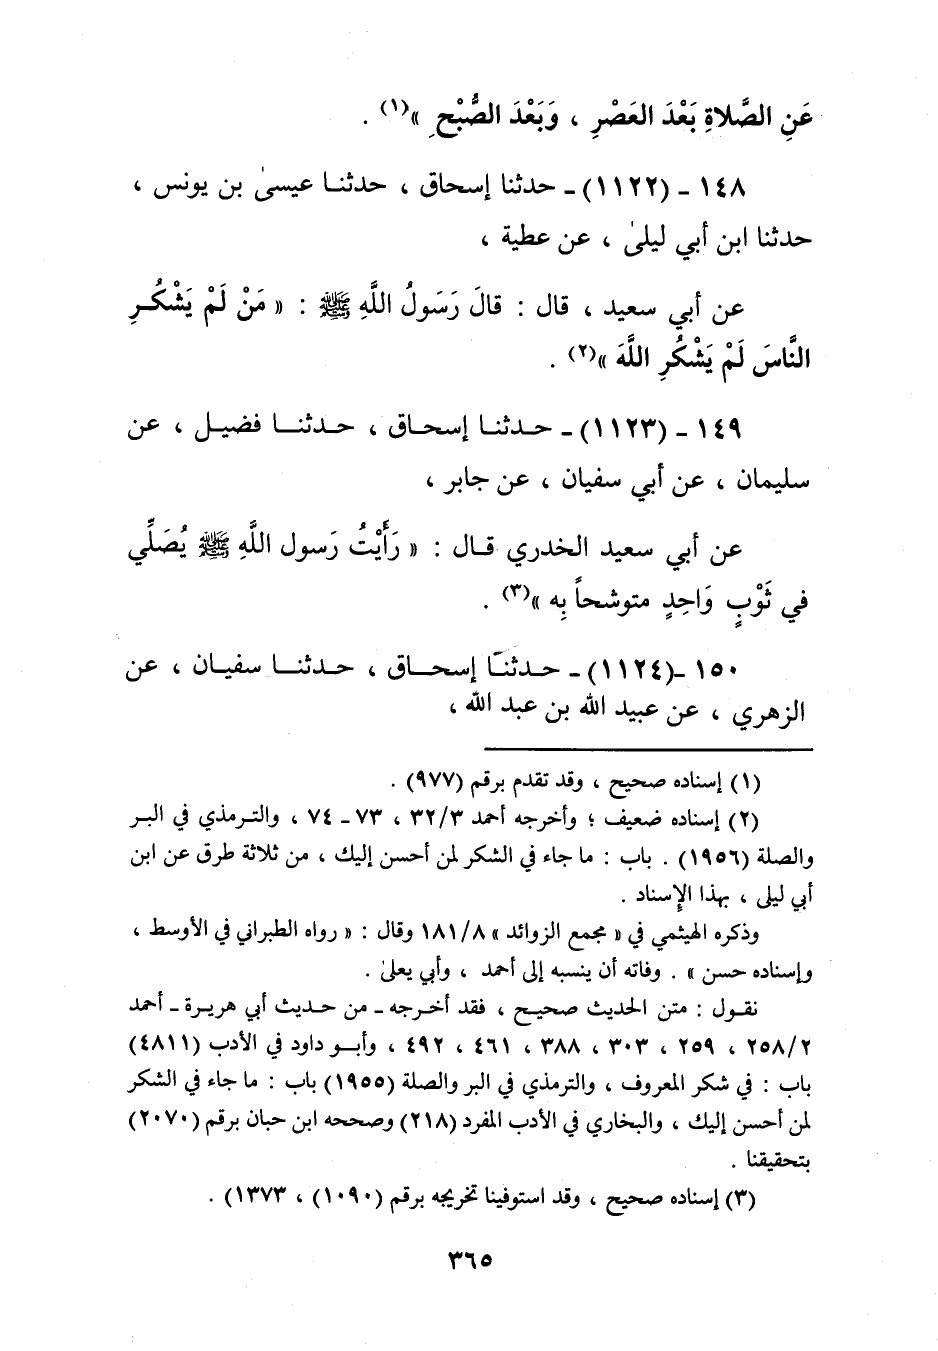 عَنِ الصَّلاةِ بَعْدَ العَصْرِ ، وَبَعْدَ الصُّبْحِ »(١) .
١٤٨ ـ (١١٢٢) ـ حدثنا إسحاق ، حدثنـا عيسىٰ بن يونس ،
حدثنا ابن أبي ليلىٰ ، عن عطية ،
عن أبي سعيد ، قال : قالَ رَسَولُ اللَّهِ ﷺ : « مَنْ لَمْ يَشْكُـرِ
النَّاسَ لَمْ يَشْكُرِ اللَّهَ »(٢) .
١٤٩ ـ (١١٢٣) ـ حـدثنـا إسحـاق ، حـدثنـــا فضيــل ، عن
سليمان ، عن أبي سفيان ، عن جابر ،
عن أبي سعيد الخدري قـال : « رَأَيْتُ رَسول اللَّهِ ﷺ يُصَلِّي
في ثَوْبٍ وَاحِدٍ متوشحاً بِه »(٣) .
١٥٠ ـ(١١٢٤) ـ حـدثنـا إسحـاق ، حـدثنـا سفيـان ، عن
الزهري ، عن عبيد الله بن عبد الله ،
(١) إسناده صحيح ، وقد تقدم برقم (٩٧٧) .
(٢) إسناده ضعيف ؛ وأخرجه أحمد ٣٢/٣ ، ٧٣ ـ ٧٤ ، والتـرمذي في البـر
والصلة (١٩٥٦) . باب : ما جاء في الشكر لمن أحسن إليك ، من ثلاثة طرق عن ابن
أبي ليلى ، بهذا الإسناد .
وذكره الهيثمي في « مجمع الزوائد » ١٨١/٨ وقال : « رواه الطبراني في الأوسط ،
وإسناده حسن » . وفاته أن ينسبه إلى أحمد ، وأبي يعلىٰ .
نقـول : متن الحديث صحيـح ، فقد أخـرجه ـ من حـديث أبي هريـرة ـ أحمد
٢٥٨/٢ ، ٢٥٩ ، ٣٠٣ ، ٣٨٨ ، ٤٦١ ، ٤٩٢ ، وأبـو داود في الأدب (٤٨١١)
باب : في شكر المعروف ، والترمذي في البر والصلة (١٩٥٥) باب : ما جاء في الشكر
لمن أحسن إليك ، والبخاري في الأدب المفرد (٢١٨) وصححه ابن حبان برقم (٢٠٧٠)
بتحقيقنا .
(٣) إسناده صحيح ، وقد استوفينا تخريجه برقم (١٠٩٠) ، ١٣٧٣) .
٣٦٥